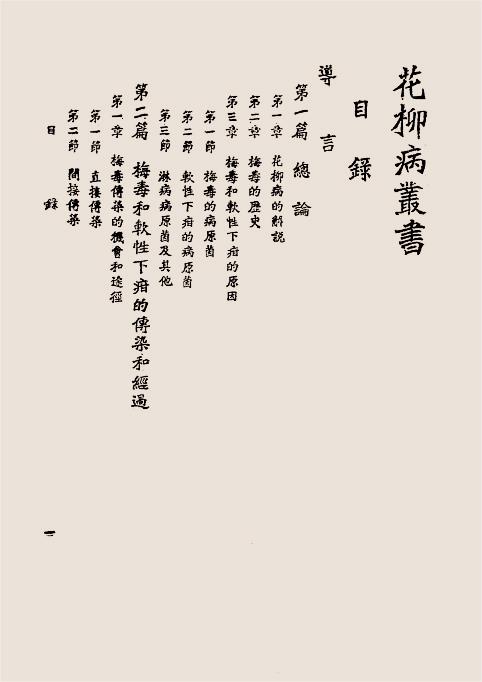 花柳病叢書
目錄
導言
第一篇 總論
第一章 花柳病的解説
第二章 梅毒的歷史
第三章 梅毒和軟性下疳的原因
第一節 梅毒的病原菌
第二節 軟性下疳的病原菌
第三節 淋病病原菌及其他
第二篇 梅毒和軟性下疳的傳染和經過
第一章 梅毒傳染的機會和途徑
第一節 直接傳染
第二節 間接傳染
目錄
一